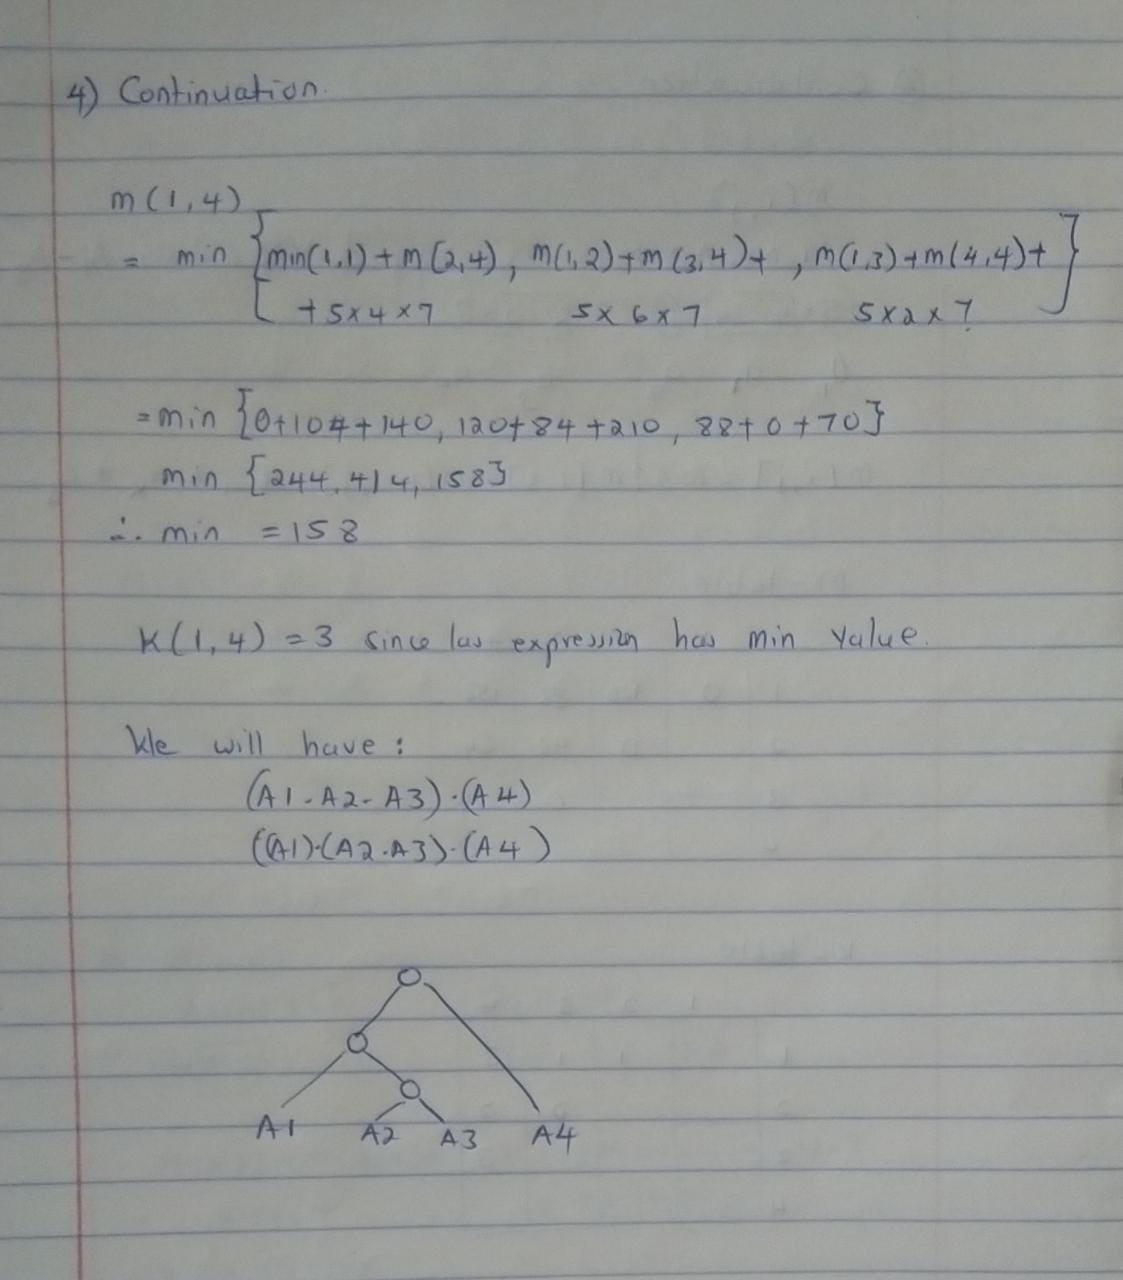 4) Continuation.
m(1,4)
= min {min(1,1)+m(2,4), m(1,2)+m(3,4)+, m(1,3)+m(4,4)+}
+5x4x7 5x6x7 5x2x7
=min {0+104+140, 120+84+210, 88+0+70}
min {244, 414, 158}
∴ min = 158
K(1,4) = 3 since las expression has min value.
We will have:
(A1-A2-A3)·(A4)
((A1)·(A2·A3)·(A4)
A1 A2 A3 A4